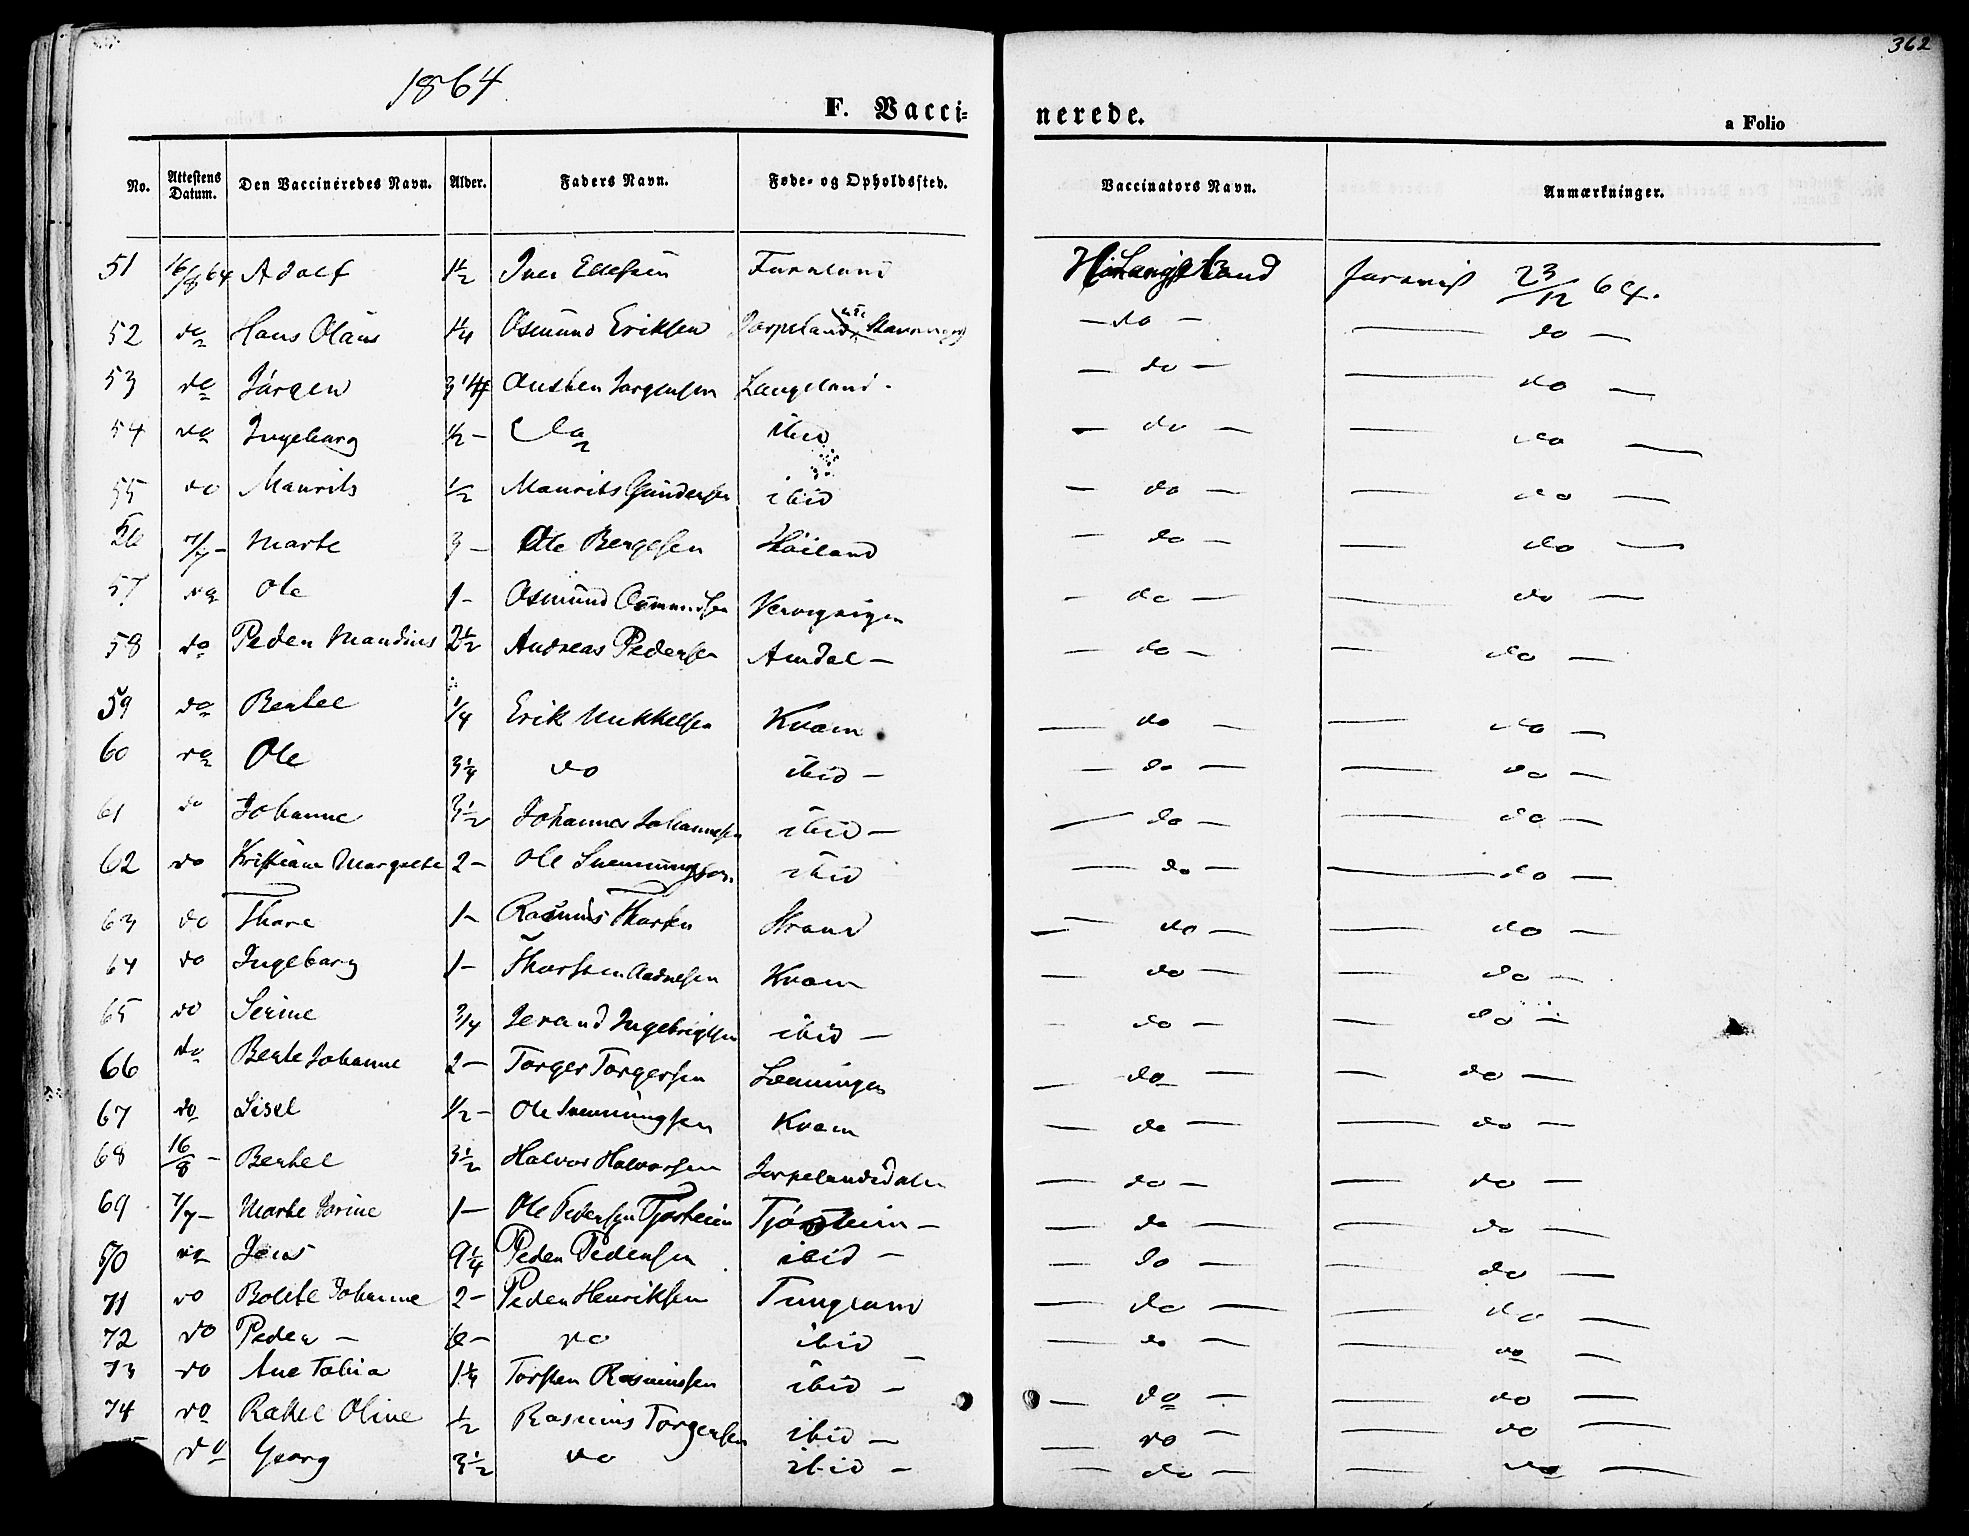 362
1864
F. Vacci-
nerede.
a Folio
No. Attestens Datum. Den Vaccineredes Navn. Alder. Faders Navn. Føde- og Opholdssted. Vaccinators Navn. Anmærkninger.
51 16/8 64 Adolf 1½ Iver Ellefsen 23/12 64.
52 do Hans Olaus 1¼ Osmund Eriksen Jorpeland Stavanger - do - - do -
53 do Jörgen Austen Jorgensen Langeland - - do - - do -
54 do Ingeborg ½ - do ibid - do - - do -
55 do Maurits ½ Maurits Gundersen ibid - do - - do -
56 7/7 - Marte 3 - Ole Bergesen Höiland - do - - do -
57 do Ole 1 - Osmund Osmundsen - do - - do -
58 do Peder Mandius 2½ Andreas Pedersen Amdal - - do - - do -
59 do Bertel ¼ Erik Mikkelsen Kvam - do - - do -
60 do Ole 3¼ do ibid - - do - - do -
61 do Johanne 3½ Johannes Johannesen ibid - - do - - do -
62 do Kristiane Margrethe 2 - Ole Svenningsen ibid - do - - do -
63 do Thore 1 - Rasmus Strand - do - - do -
64 do Ingeborg 1 - Thorsten Aadnesen Kvam - do - - do -
65 do Serine 3/4 Jerand Ingebrigtsen ibid - - do - - do -
66 do Berte Johanne 2 - Torger Torgersen - do - - do -
67 do Sisel ½ - Ole Svenningsen Kvam - do - - do -
68 16/8 - Bertel 3½ Halvor Halvorsen Jorpelandsdalen - do - - do -
69 7/7 - Marte Serine 1 - Ole Pedersen Tjostheim Tjöstheim - - do - - do -
70 do Jens 9¼ Peder Pedersen ibid - - do - - do -
71 do Bolite Johanne 2 - Peder Henriksen Tungland - do - - do -
72 do Peder - 6 - do ibid - - do - - do -
73 do Ane Tobia 1¼ Torsten Rasmussen ibid - - do - - do -
74 do Rakel Oline ½ Rasmus Torgersen ibid - - do - - do -
do Georg 3½ do ibid - - do - - do -